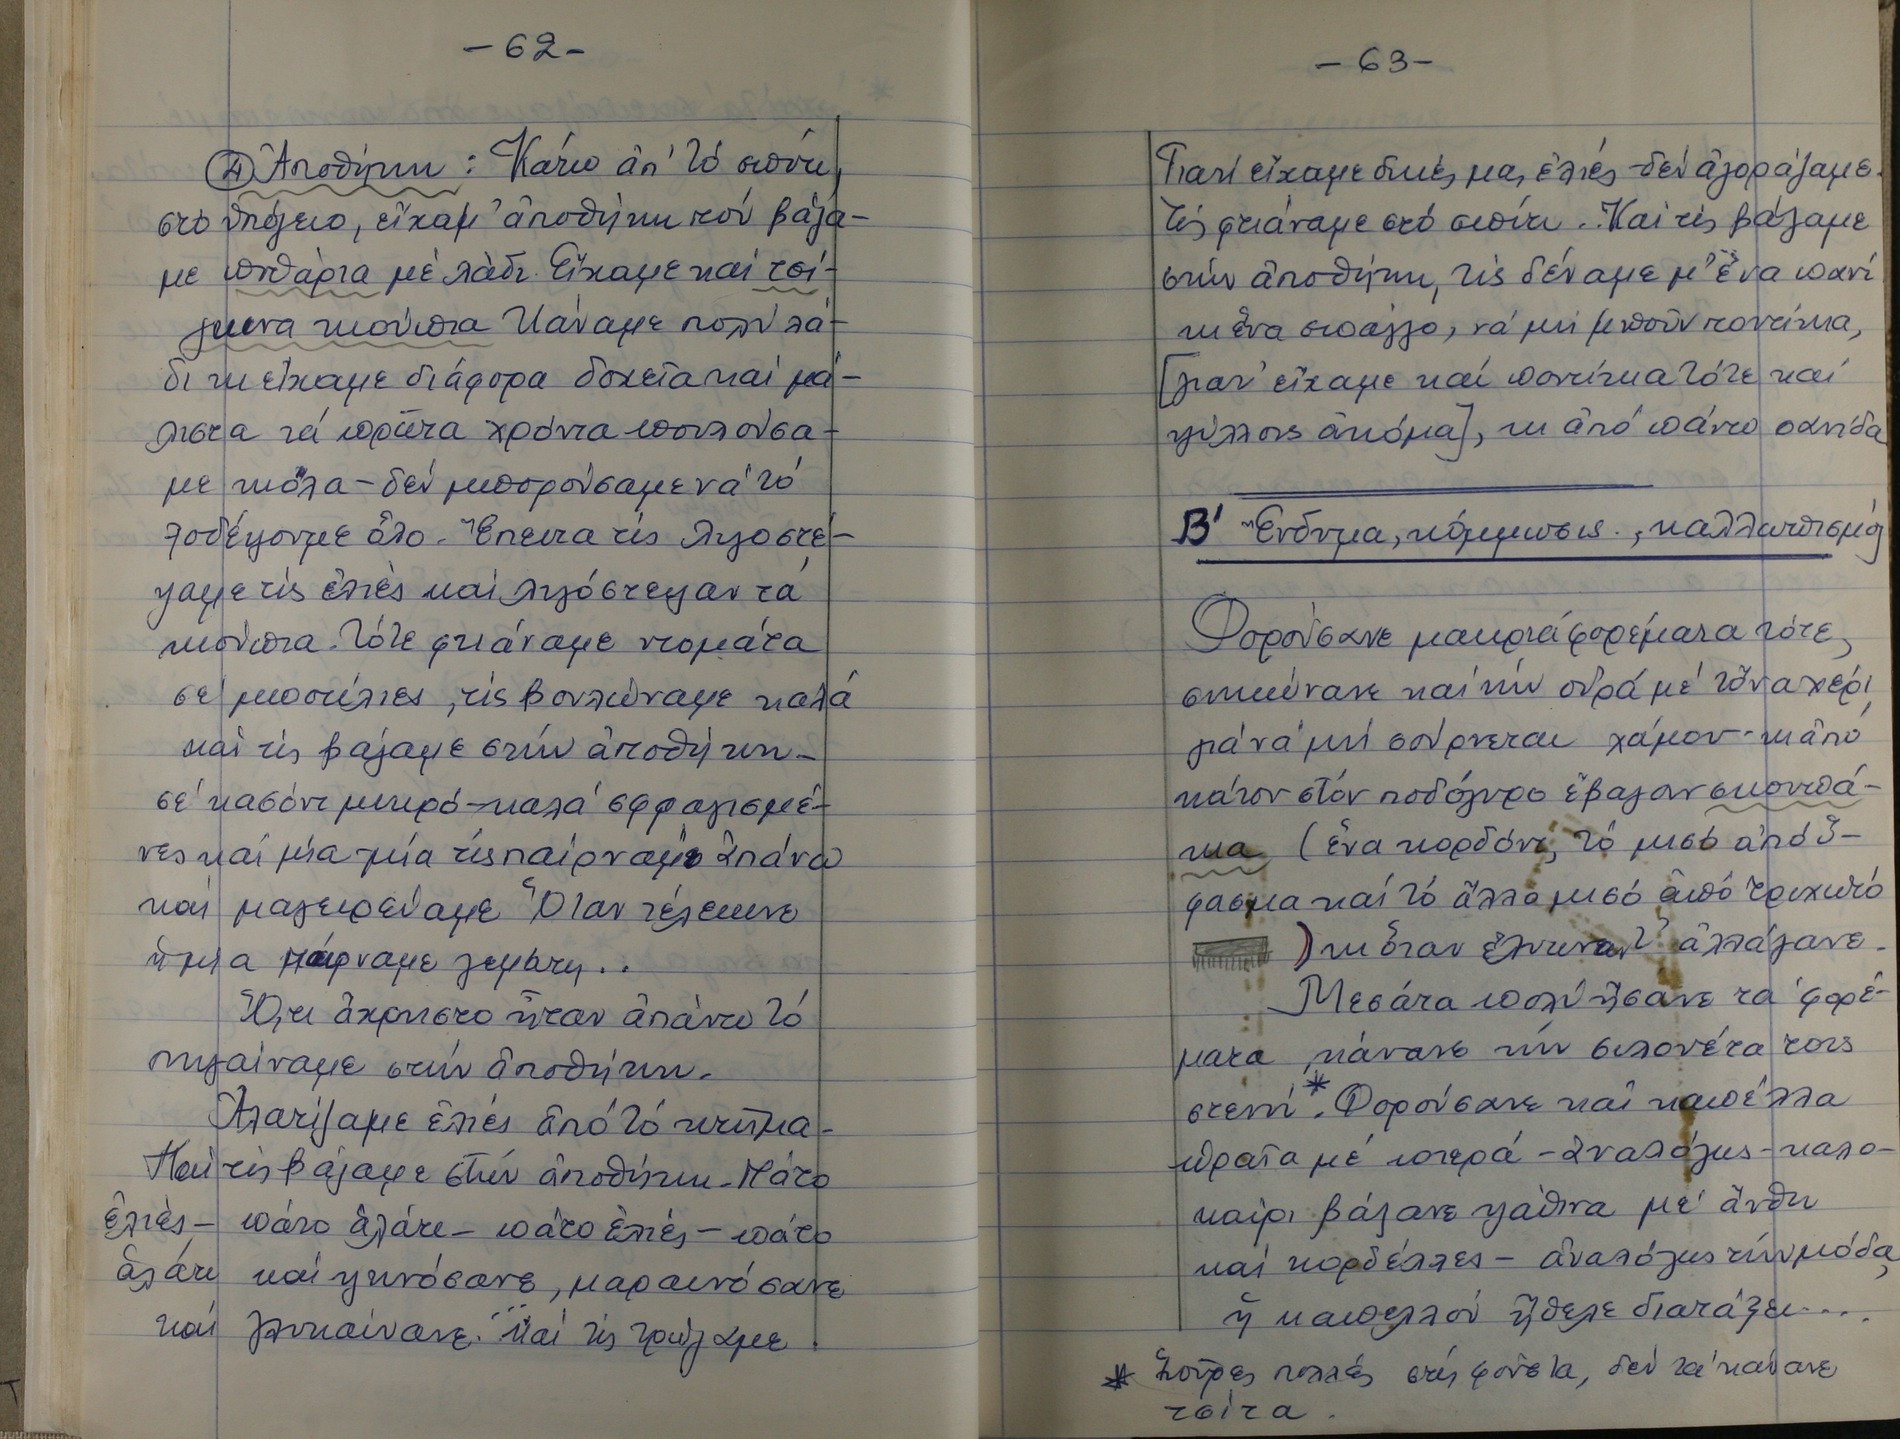 -62-
④ Ἀποθήκη : Κάτω ἀπ' τό σπίτι,
στό ὑπόγειο, εἴχαμ' ἀποθήκη πού βάζα-
με πιθάρια μέ λάδι. Εἴχαμε καί τσί-
γκινα κιούπια Κάναμε πολύ λά-
δι κι εἴχαμε διάφορα δοχεῖα καί μά-
λιστα τά πρῶτα χρόνια πουλούσα-
με κιόλα - δέν μπορούσαμε νά τό
ξοδέψουμε ὅλο. Ἔπειτα τίς λιγοστέ-
ψαμε τίς ἐλιές καί λιγόστεψαν τά
κιούπια. Τότε φτιάναμε ντομάτα
σέ μποτίλιες, τίς βουλώναμε καλά
καί τίς βάζαμε στήν ἀποθήκη -
σέ κασόνι μικρό - καλά σφραγισμέ-
νες καί μία μία τίς παίρναμε ἀπάνω
καί μαγειρεύαμε Ὅταν τέλειωνε
ἡ μία παίρναμε ..
Ὅ,τι ἄχρηστο ἦταν ἀπάνω τό
πηγαίναμε στήν ἀποθήκη.
Ἀλατίζαμε ἐλιές ἀπό τό κτῆμα -
Καί τίς βάζαμε στήν ἀποθήκη. Πάτο
ἐλιές - πάτο ἀλάτι - πάτο ἐλιές - πάτο
ἀλάτι καί ψηνόσανε, μαραινόσανε
καί γλυκαίνανε. Καί τίς τρώγαμε.
-63-
Γιατί εἴχαμε δικές μας ἐλιές - δέν ἀγοράζαμε.
Τίς φτιάναμε στό σπίτι. Καί τίς βάζαμε
στήν ἀποθήκη, τίς δέναμε μ' ἕνα πανί
κι ἕνα σπάγγο, νά μή μποῦν ποντίκια,
[γιατ' εἴχαμε καί ποντίκια τότε καί
ψύλλους ἀκόμα], κι ἀπό πάνω σανίδα
Β' Ἔνδυμα, κόμμωσις., καλλωπισμός
Φορούσανε μακριά φορέματα τότε,
σηκώνανε καί τήν οὐρά μέ τὄνα χέρι
γιά νά μή σούρνεται χάμου - κι ἀπό
κάτου στόν ποδόγυρο ἔβαζαν σκουπά-
κια (ἕνα κορδόνι, τό μισό ἀπό ὕ-
φασμα καί τό ἄλλο μισό ἀπό τριχωτό
) κι ὅταν ἔλιωναν τ' ἀλλάζανε.
Μεσάτα πολύ ἤσανε τά φορέ-
ματα, κάνανε τήν σιλουέτα τους
στενή*. Φορούσανε καί καπέλλα
ὡραῖα μέ φτερά - ἀναλόγως - καλο-
καίρι βάζανε ψάθινα μέ ἄνθη
καί κορδέλλες - ἀναλόγως τήν μόδα,
ἤ καπελλού ἤθελε διατάξει....
* Σοῦρες πολλές στίς φοῦστα, δέν τά κάνανε
τσίτα.